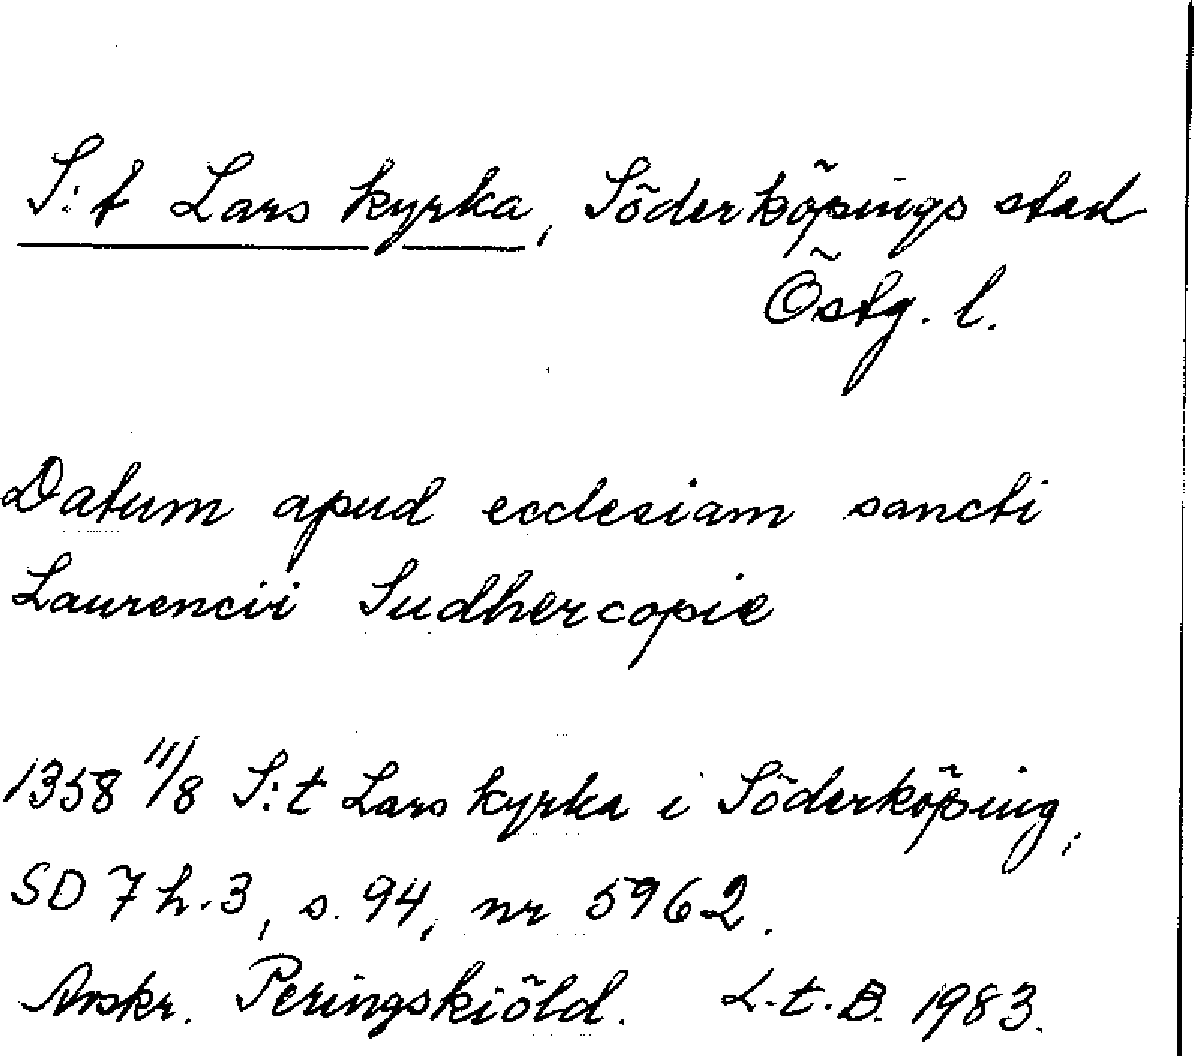 S:t Lars kyrka, Söderköpings stad
Östg. l.
Datum apud ecclesiam sancti
Laurencii Sudhercopie
1358 11/8 S:t Lars kyrka i Söderköping,
SD 7 h. 3, s. 94, nr 5962.
Avskr. Peringskiöld. L.t.B. 1983.